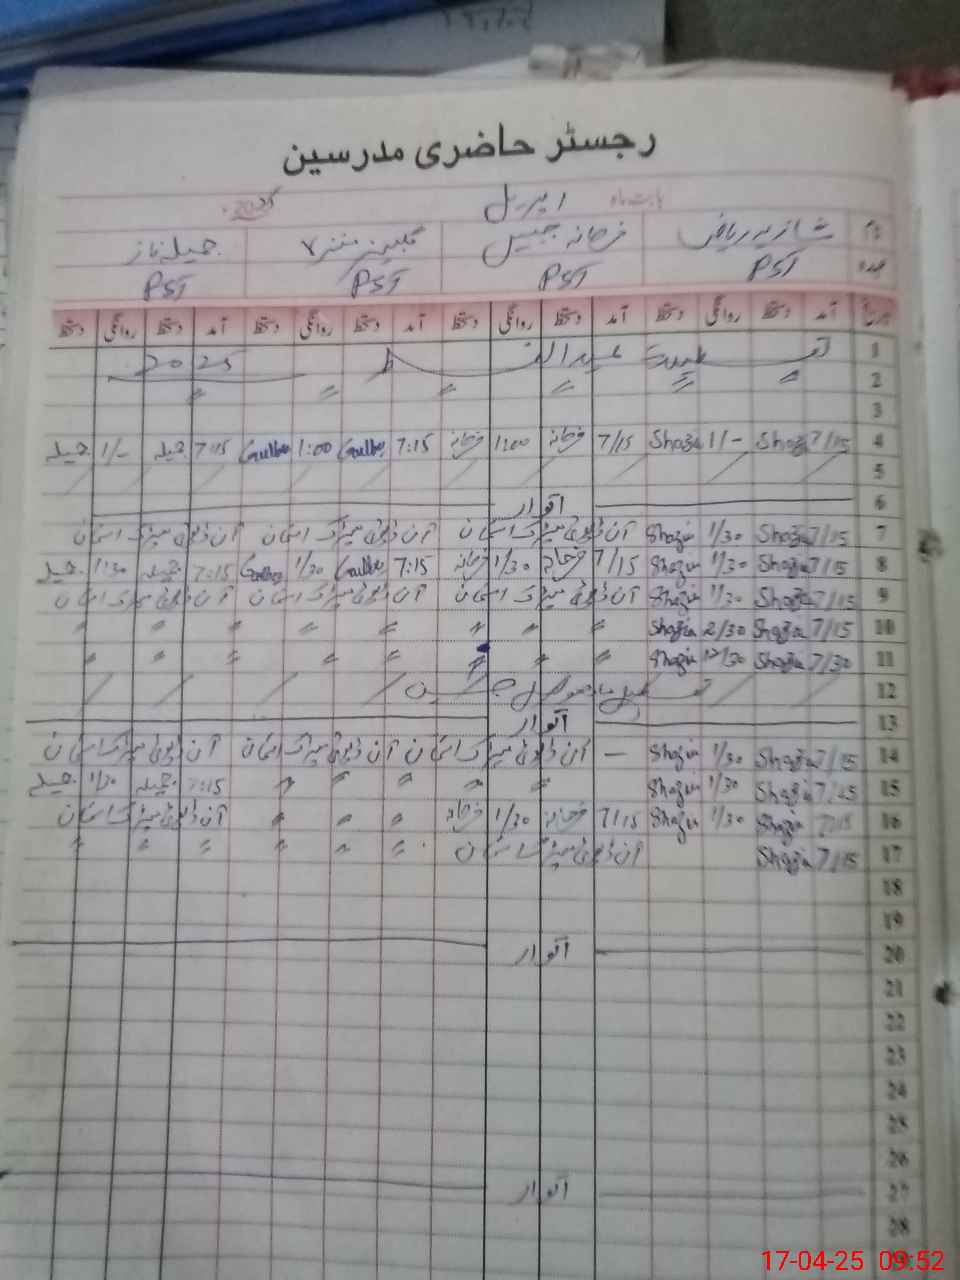 رجسٹر حاضری مدرسین
بابت ماہ اپریل 2025
نام شازیہ ریاض فرحانہ جمیل جمیلہ ناز
عہدہ PST PST PST PST
تاریخ آمد دستخط روانگی دستخط آمد دستخط روانگی دستخط آمد دستخط روانگی دستخط آمد دستخط روانگی دستخط
1 عید الفطر 2025
2 〃 〃 〃 〃 〃 〃
3
4 7/15 Shazia 1/- Shazia 7/15 فرحانہ 1:00 فرحانہ 7:15 1:00 7:15 جمیلہ 1/- جمیلہ
5
6 اتوار
7 7/15 Shazia 1/30 Shazia آن ڈیوٹی میٹرک امتحان آن ڈیوٹی میٹرک امتحان آن ڈیوٹی میٹرک امتحان
8 7/15 Shazia 1/30 Shazia 7/15 فرحانہ 1/30 فرحانہ 7:15 1/30 7:15 جمیلہ 1:30 جمیلہ
9 7/15 Shazia 1/30 Shazia آن ڈیوٹی میٹرک امتحان آن ڈیوٹی میٹرک امتحان آن ڈیوٹی میٹرک امتحان
10 7/15 Shazia 2/30 Shazia 〃 〃 〃 〃 〃 〃 〃 〃
11 7/30 Shazia 12/30 Shazia 〃 〃 〃 〃 〃 〃 〃 〃
12
13 اتوار
14 7/15 Shazia 1/30 Shazia — آن ڈیوٹی میٹرک امتحان آن ڈیوٹی میٹرک امتحان آن ڈیوٹی میٹرک امتحان
15 Shazia 1/30 Shazia 〃 〃 〃 〃 〃 〃 7:15 جمیلہ 1/30 جمیلہ
16 7:15 Shazia 1/30 Shazia 7/15 فرحانہ 1/30 فرحانہ 〃 〃 〃 〃 آن ڈیوٹی میٹرک امتحان
17 7/15 Shazia آن ڈیوٹی میٹرک امتحان 〃 〃 〃 〃 〃 〃
18
19
20 اتوار
21
22
23
24
25
26
27 اتوار
28
17-04-25 09:52